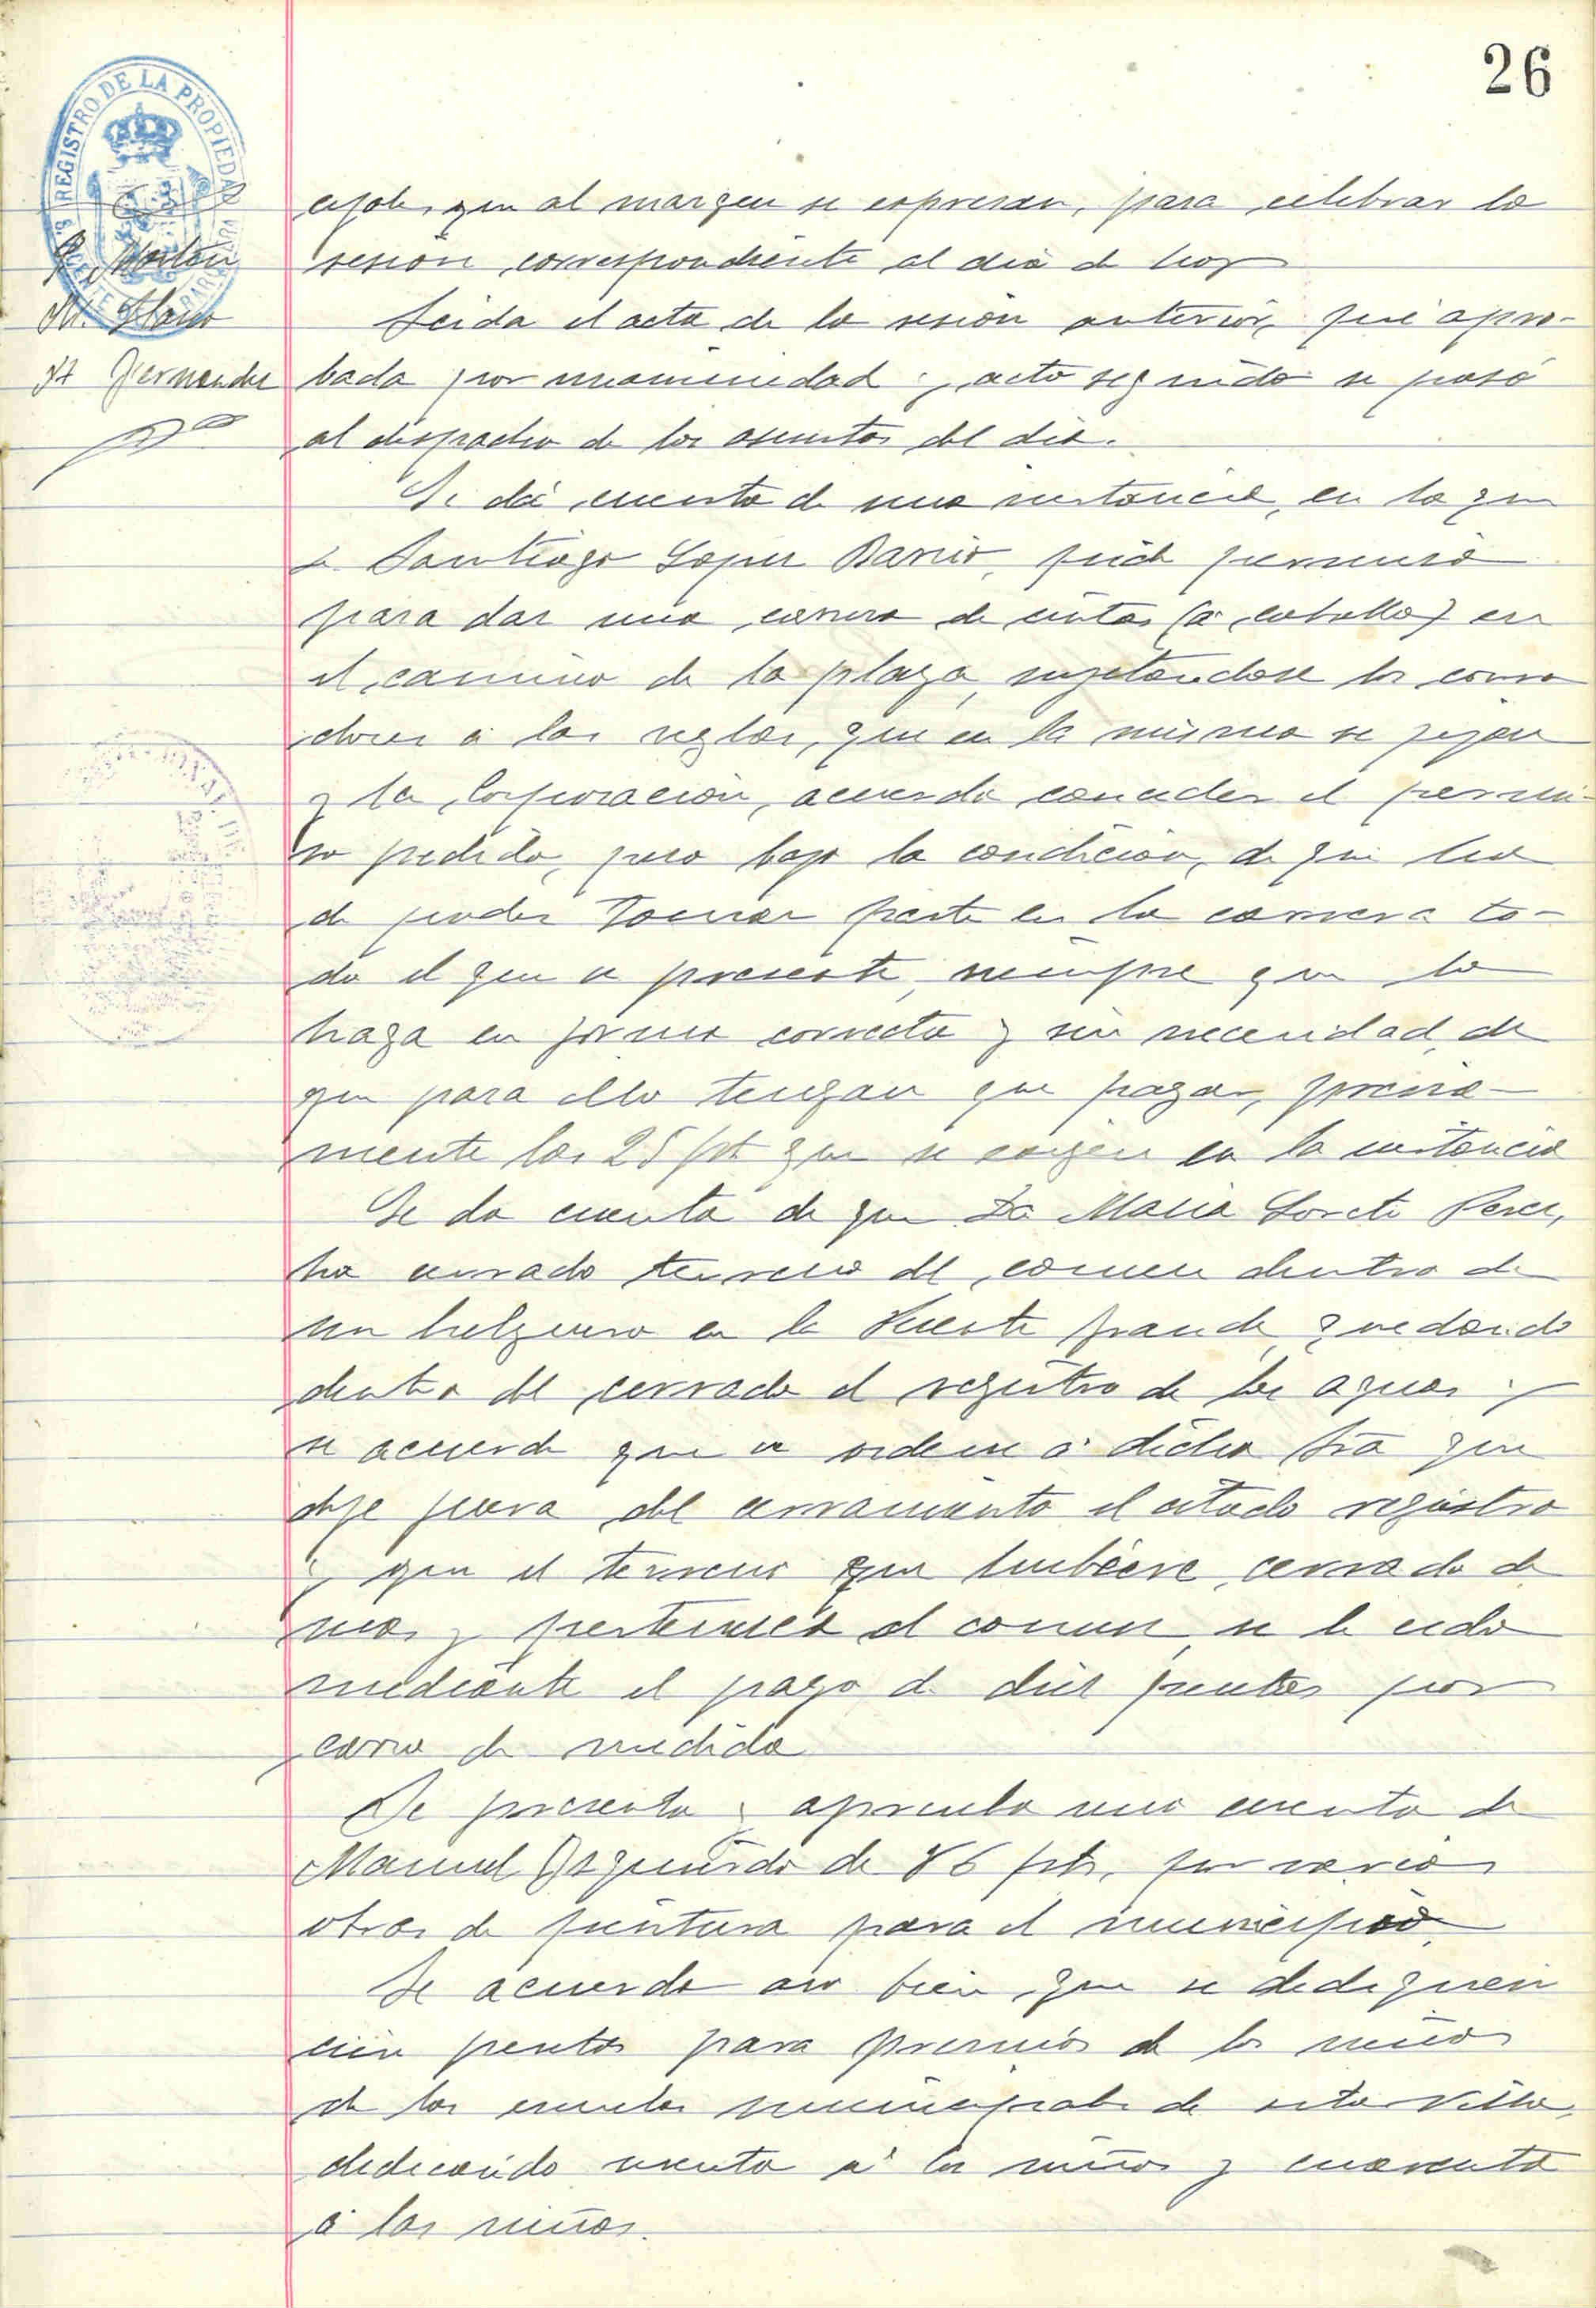 26
REGISTRO DE LA PROPIEDAD
S. VICENTE DE LA BARQUERA
Llano
Fernandez
cejales que al margen se expresan, para celebrar la
sesión correspondiente al dia de hoy
Leida el acta de la sesión anterior, fué apro-
bada por unanimidad y acto seguido se pasó
al despacho de los asuntos del dia.
Se dá cuenta de una instancia, en la que
D. Santiago Lopez Barrio, pide permiso
para dar una carrera de cintas (á caballo) en
el camino de la playa, sujetandose los corre
dores á las reglas, que en la misma se fijan
y la Corporación, acuerda conceder el permi-
so pedido, pero bajo la condición, de que ha
de poder tomar parte en la carrera to-
do el que se presente, siempre que lo
haga en forma correcta y sin necesidad de
que para ello tengan que pagar, precisa-
mente las 25 pts que se exigen en la instancia
Se da cuenta de que Da Maria Loreto Perez,
ha cerrado terreno del comun dentro de
un helguero en la Fuente grande, quedando
dentro del cerrado el registro de las aguas y
se acuerda que se ordene á dicha Sra que
deje fuera del cerramiento el citado registro
y que el terreno que hubiere cerrado de
mas y pertenezca al comun, se le ceda
mediante el pago de diez pesetas por
carro de medida
Se presenta y aprueba una cuenta de
Manuel Izquierdo de 86 pts, por varias
obras de pintura para el municipio.
Se acuerda asi bien, que se dediquen
cien pesetas para premios de los niños
de las escuelas municipales de esta Villa,
dedicando sesenta á los niños y cuarenta
á las niñas.